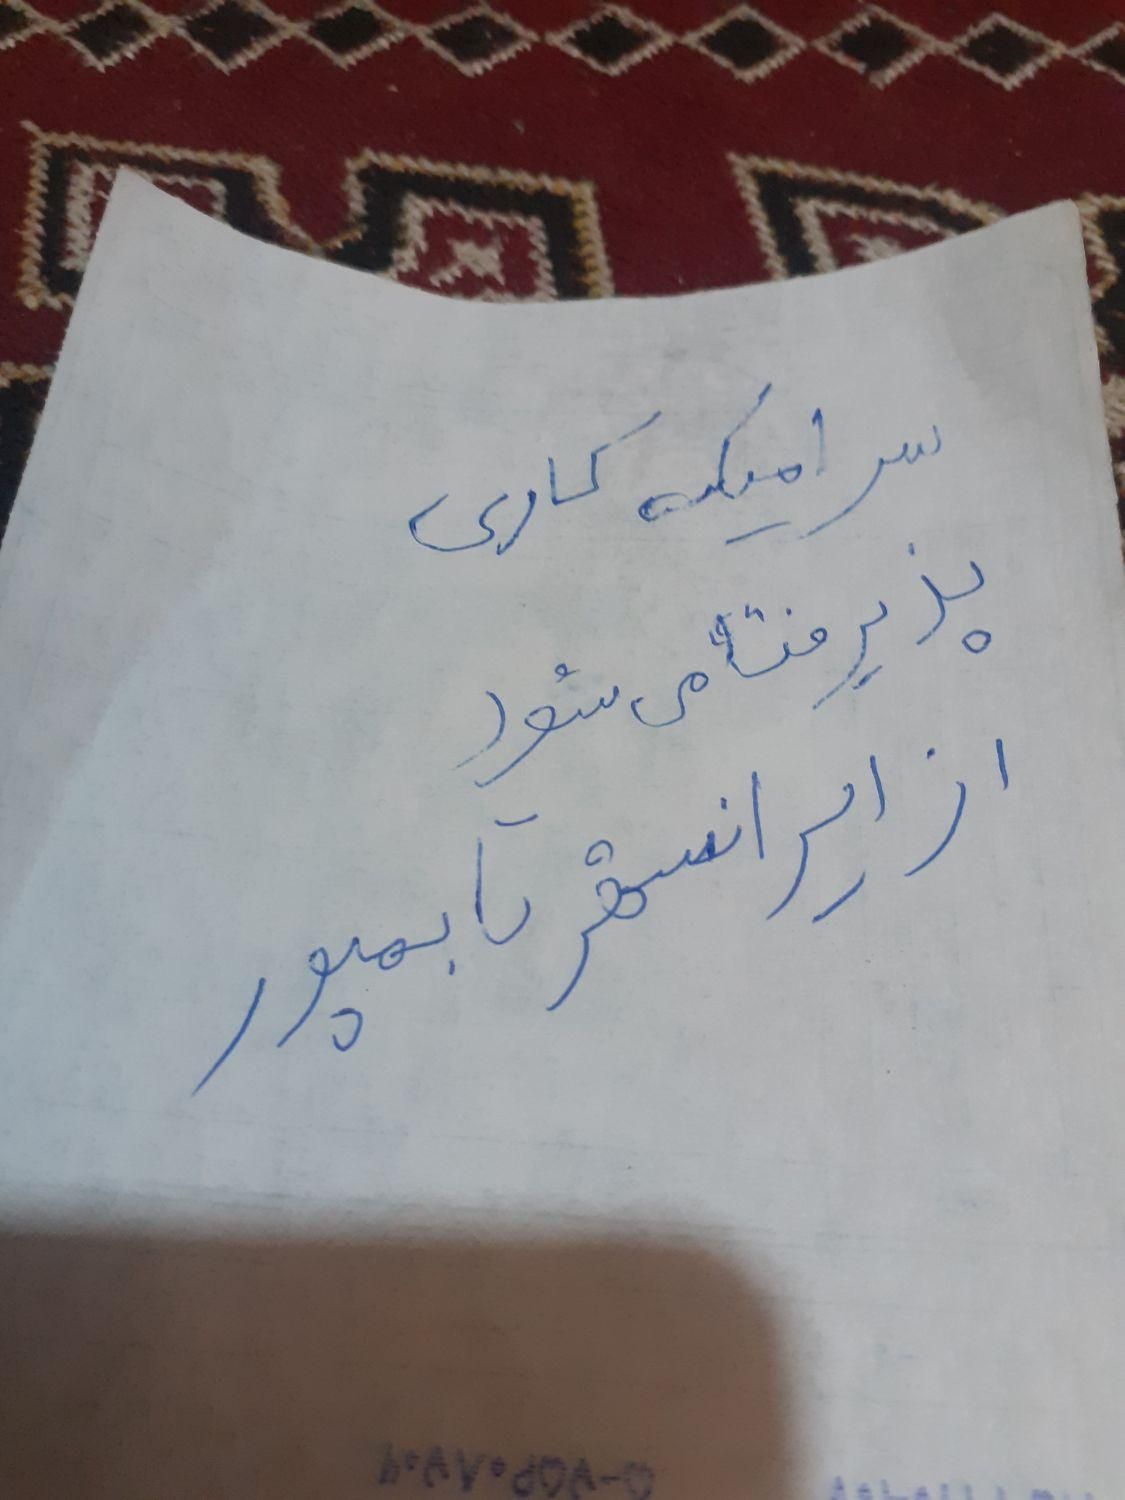 سرامیک کاری
پذیرفتا می شود
از ایرانشهر تا بمپور